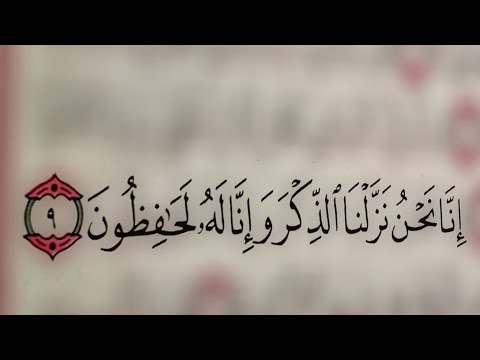 إِنَّا نَحْنُ نَزَّلْنَا ٱلذِّكْرَ وَإِنَّا لَهُۥ لَحَٰفِظُونَ ٩